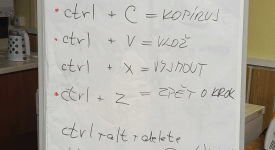 • ctrl + C = KOPÍRUJ
• ctrl + V = VLOŽ
ctrl + X = VYJMOUT
• ctrl + Z = ZPĚT O KROK
ctrl + alt + delete